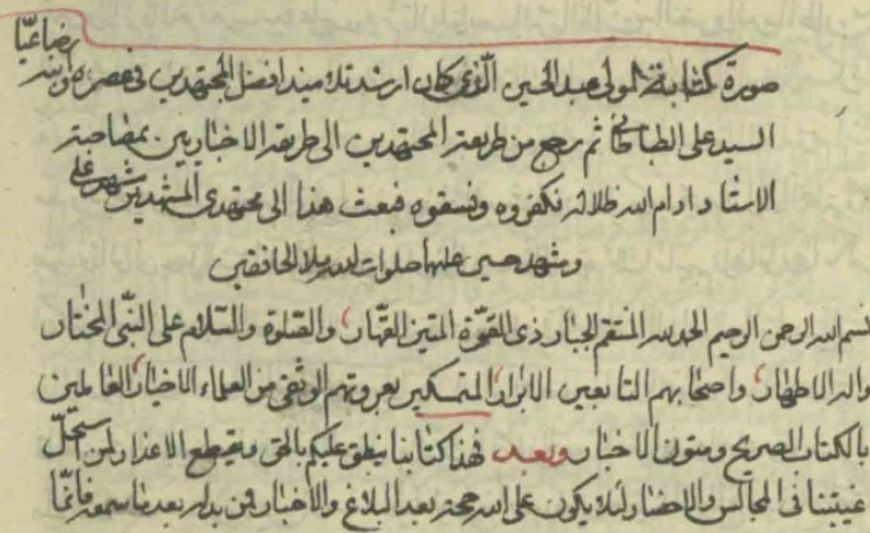 رضاعيّا
صورة كتابة المولى عبد الحسين الّذى كان ارشد تلاميذ افضل المجتهدين فى عصره والله
السيد على الطباطبائى ثم رجع من طريقة المجتهدين الى طريقة الاخباريين بمصاحبة
الاستاد ادام الله ظلاله فكفروه وفسقوه فبعث هذا الى مجتهدى المشهدين مشهد على
ومشهد حسين عليهما صلوات الله ملأ الخافقين
بسم الله الرحمن الرحيم الحمد لله المنتقم الجبار ذى القوّة المتين القهّار والصّلوة والسّلام على النّبى المختار
واله الاطهار واصحابهم التابعين الابرار المتمسكين بعروتهم الوثقى من العلماء الاخيار العاملين
بالكتاب الصريح ومتون الاخبار وبعد فهذا كتابنا ينطق عليكم بالحق ويقطع الاعذار لمن استحلّ
غيبتنا فى المجالس والاحضار لئلا يكون على الله حجة بعد البلاغ والاخبار فمن بدله بعد ما سمعه فانّما